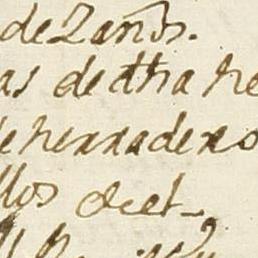 de 2 años.
as de dha he
e herradero
llos &cet.